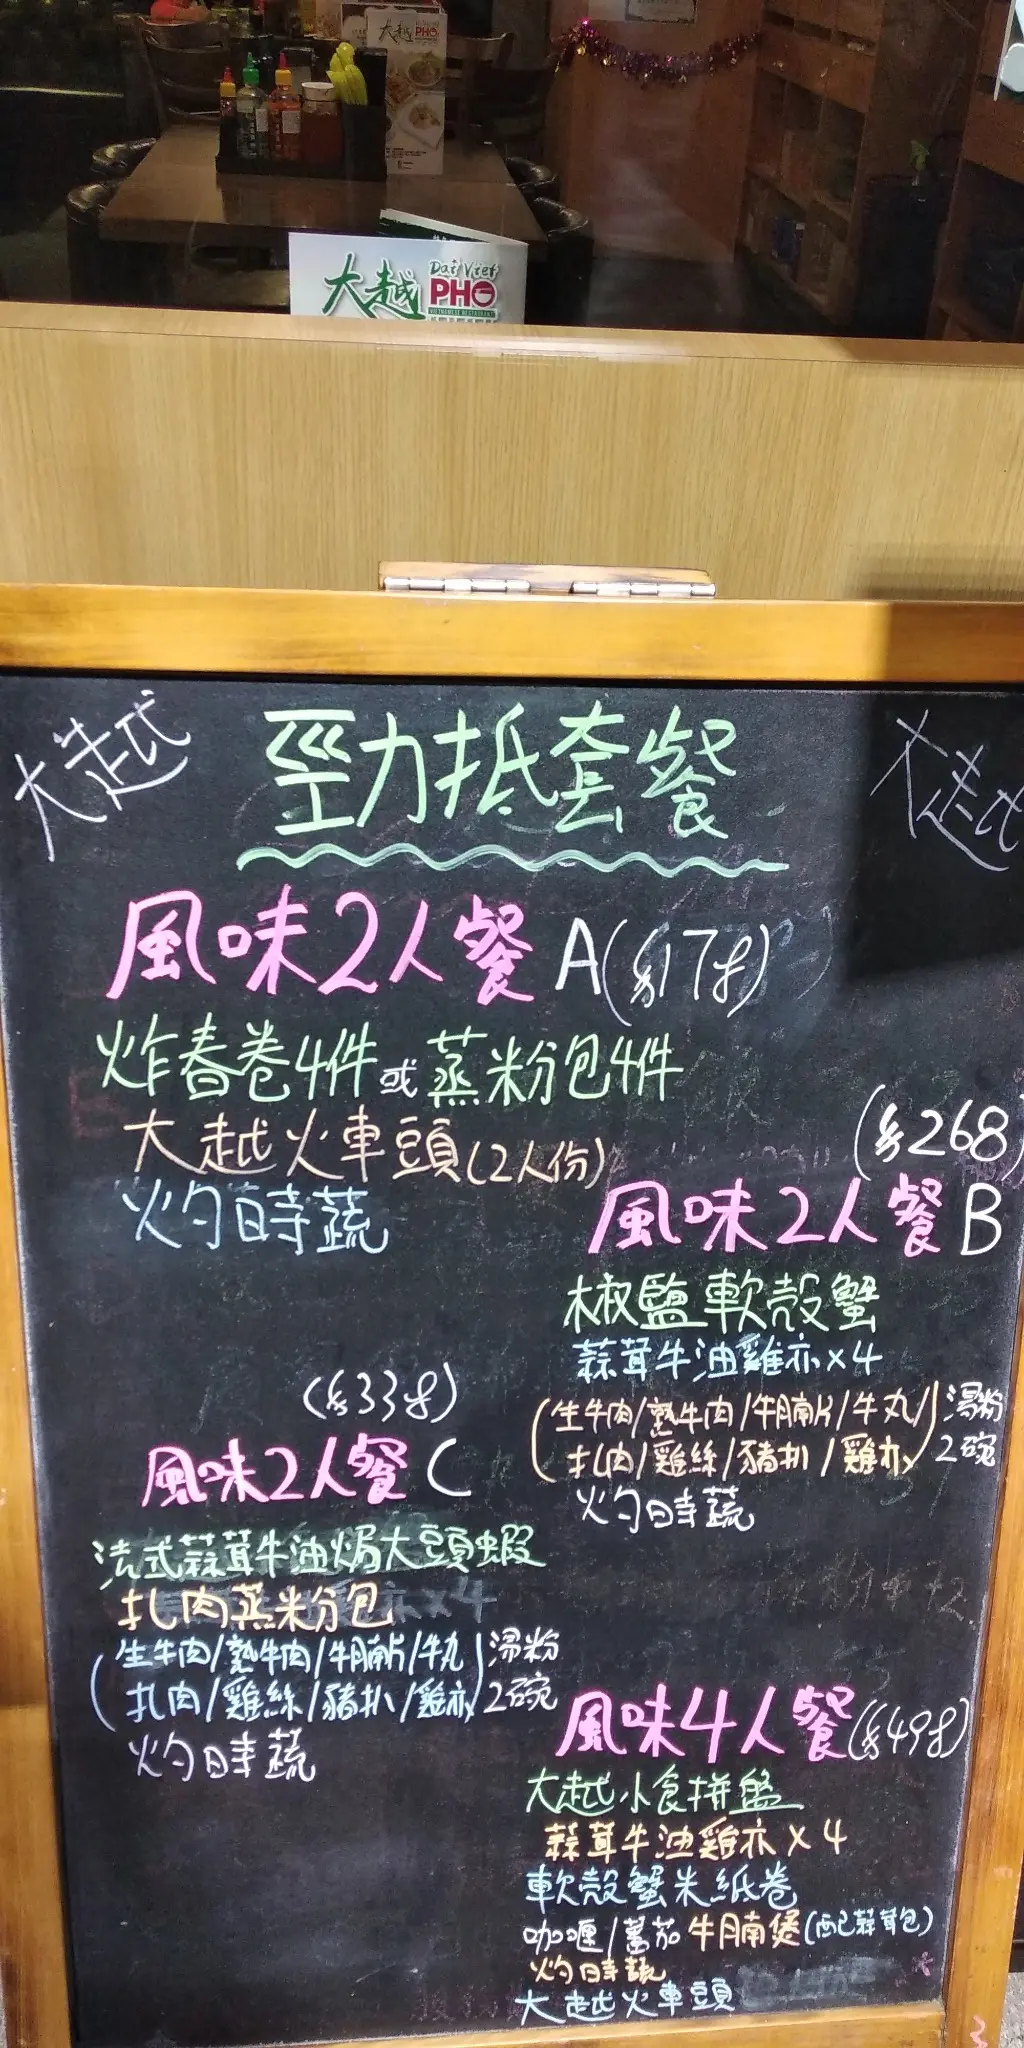 大越 PHO
大越 Dai Viet
PHO
VIETNAMESE RESTAURANT
大越 勁抵套餐 大越
風味2人餐A($178)
炸春卷4件或蒸粉包4件
大越火車頭(2人份)
灼時蔬
($268)
風味2人餐B
椒鹽軟殼蟹
蒜茸牛油雞亦x4
(生牛肉/熟牛肉/牛腩片/牛丸/
扎肉/雞絲/豬扒/雞亦)湯粉2碗
灼時蔬
($338)
風味2人餐C
法式蒜茸牛油焗大頭蝦
扎肉蒸粉包
(生牛肉/熟牛肉/牛腩片/牛丸
扎肉/雞絲/豬扒/雞亦)湯粉2碗
灼時蔬
風味4人餐($498)
大越小食拼盤
蒜茸牛油雞亦x4
軟殼蟹米紙卷
咖喱/蕃茄牛腩煲(配蒜茸包)
灼時蔬
大越火車頭